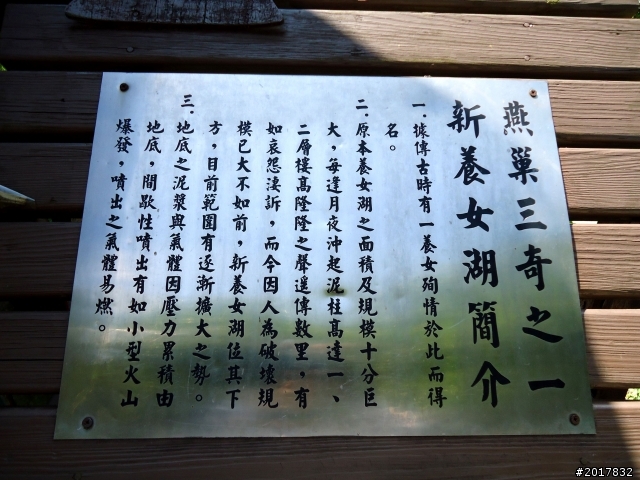 燕巢三奇之一
新養女湖簡介
一.據傳古時有一養女殉情於此而得
名。
二.原本養女湖之面積及規模十分巨
大，每逢月夜沖起泥柱高達一、
二層樓高隆隆之聲遥傳數里，有
如哀怨淒訴，而今因人為破壞規
模已大不如前，新養女湖位其下
方，目前範圍有逐漸擴大之勢。
三.地底之泥漿與氣體因壓力累積由
地底，間歇性噴出有如小型火山
爆發，噴出之氣體易燃。
#2017832